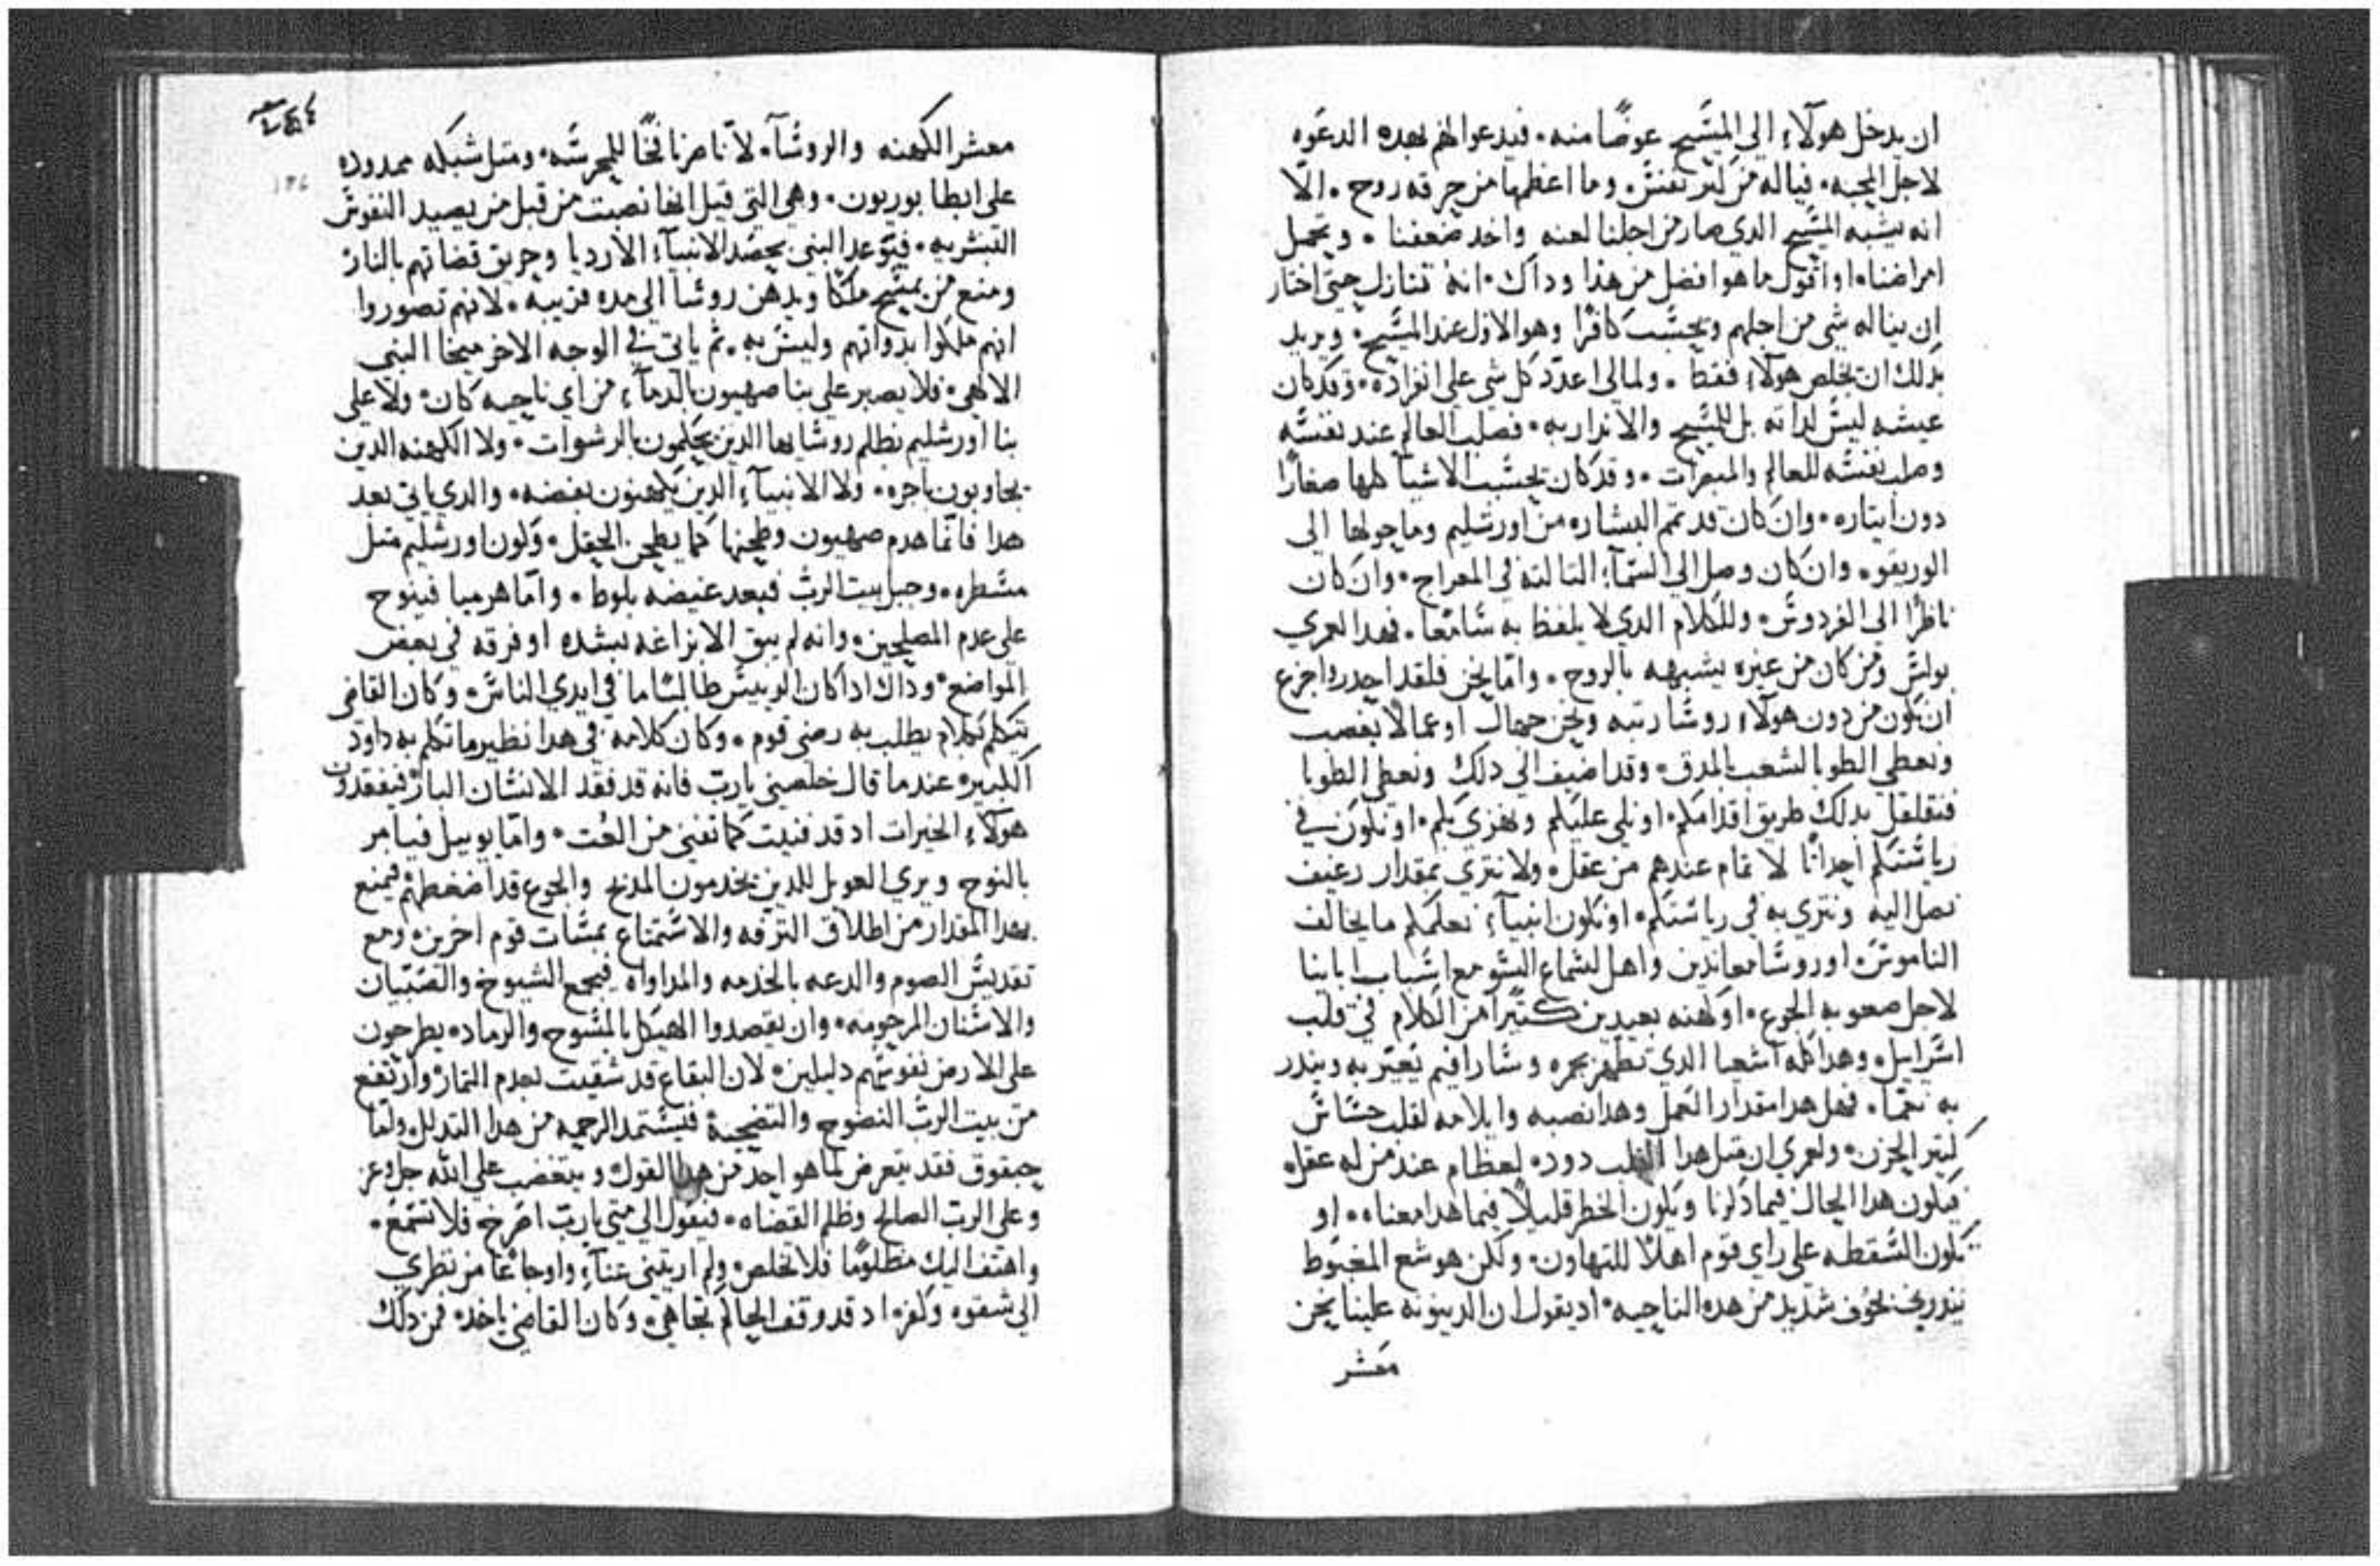 ان يدخل هولآء الى المسيح عوضًا منه. فيدعوا لهم بهده الدعوه
لاجل المحبه. فياله من كبر نفس. وما اعظمها من حرقه روح. الّا
انه يشبه المسيح الدي صار من اجلنا لعنه واخد ضعفنا. وتحمل
امراضنا. او اقول ما هو افضل من هذا وداك. انه تنازل حتى اختار
ان يناله شي من اجلهم ويحسب كافرًا وهو الاول عند المسيح. ويريد
بدلك ان يخلص هولآء فقط. ولمالي اعدّد كل شي على انفراده. وقد كان
عيشه ليس لداته بل للمسيح والاندار به. فصلب العالم عند نفسه
وصلب نفسه للعالم والمبصرات. وقد كان يحسب الاشيآ كلها صغارًا
دون ايتاره. وان كان قد تمم البشاره من اورشليم وما حولها الى
الوريقو. وان كان وصل الى السمآء التالته في المعراج. وان كان
ناظرًا الى الفردوس. وللكلام الدي لا يلفظ به سامعًا. فهدا لعمري
بولس ومن كان من غيره يشبهه بالروح. وامّا نحن فلقد احدر واجزع
ان نكون من دون هولآء روسًا رتبه ونحن جهال او عمالا بغصب
ونعطي الطوبا لشعب المدق. وقد اضيف الى دلك ونعطى الطوبا
فنقلقل بدلك طريق اقدامكم. او نلهى عليكم ونهزي بكم. او نكون في
رياستكم احداثًا لا تمام عندهم من عقل. ولا نتري بمقدار رغيف
نصل اليه ونتري به في رياستكم. او نكون انبيآء نعلمكم ما يخالف
الناموس. او روسًا معاندين واهل لسماع السّو مع اسباب ابآينا
لاجل صعوبه الجوع. او كهنه بعيدين كتيرًا من الكلام في قلب
اسرايل. وهدا كله اشعيا الدي تطهر بجمره وسارافيم يعيّر به ويندر
به نعمًا. فهل هدا مقدار العمل وهدا نصبه وايلامه لقلب حسّاس
كتير الحزن. ولعمري ان متل هدا القلب دوده لعظام عند من له عقل.
فيكون هدا الحال فيما دكرنا ويكون الخطر قليلًا فيما هدا معناه. او
تكون السقطه على راي قوم اهلًا للتهاون. ولكن هوشع المغبوط
يندر بخوف شديد من هده الناحيه. اد يقول ان الدينونه علينا نحن
معشر
معشر الكهنه والروسآ. لانّا صرنا فخًا للمحرسه. ومتل شبكه ممدوده
على ايطابوريون. وهي التي قيل انها نصبت من قبل من يصيد النفوس
البشريه. فيتوعد النبي بحصد الانبيآء الارديا وحريق قضاتهم بالنار
ومنع من يمسح ملكًا ويدهن روسًا الى مده قريبه. لانهم تصوروا
انهم ملكوا بدواتهم وليس به. ثم ياتى في الوجه الاخر ميخا النبي
الالهي. فلا يصبر على بنا صهيون بالدمآء من اي ناحيه كان. ولا على
بنا اورشليم بظلم روسايها الدين يحكمون بالرشوات. ولا الكهنه الدين
يجاوبون باجره. ولا الانبيآء الدين يكهنون بفضه. والدي ياتى بعد
هدا فانّما هدم صهيون وطحنها كما يطحن الحقل. وكون اورشليم متل
مسطره. وجبل بيت الرب فيعد غيضه بلوط. وامّا هرميا فينوح
على عدم المصلحين. وانه لم يبق الا نزاغه بشده او فرقه في بعض
المواضع. وداك ادا كان الرييس طالبًا ما في ايدي الناس. وكان القاضي
يتكلم بكلام يطلب به رضى قوم. وكان كلامه في هدا نظير ما تكلم به داود
الكبير. عند ما قال خلصني يارب فانه قد فقد الانسان البار. فيفقدون
هولآء الخيرات اد قد فنيت كما تفني من العت. وامّا يوييل فيامر
بالنوح ويري العويل للدين يخدمون المدبح والجوع قد اضغطهم فيمنع
بهدا المقدار من اطلاق الترفه والاستمتاع بمسات قوم اخرين. ومع
تقديس الصوم والدعه بالخدمه والمداواه فيجمع الشيوخ والصبيان
والاسنان المرحومه. وان يقصدوا الهيكل بالمسوح والرماد. يطرحون
على الارض نفوسهم دليلين. لان البقاع قد شقيت بعدم التمار. وارتفع
من بيت الرب النضوح والتضحيه فيستمد الرحمه من هدا التدلل. ولمّا
حبقوق فقد يتعرض لما هو احد من هدا القول. ويتغضب على الله جل وعز
وعلى الرب الصالح وظلم القضاه. فيقول الى متى يارب اصرخ فلا تسمع.
واهتف اليك مظلومًا فلا تخلص. ولم اريتنى عنآء واوجاعًا من نظري
الى شقوه وكفر. اد قد وقف الحاكم تجاهي. وكان القاضي ياخد. فمن دلك